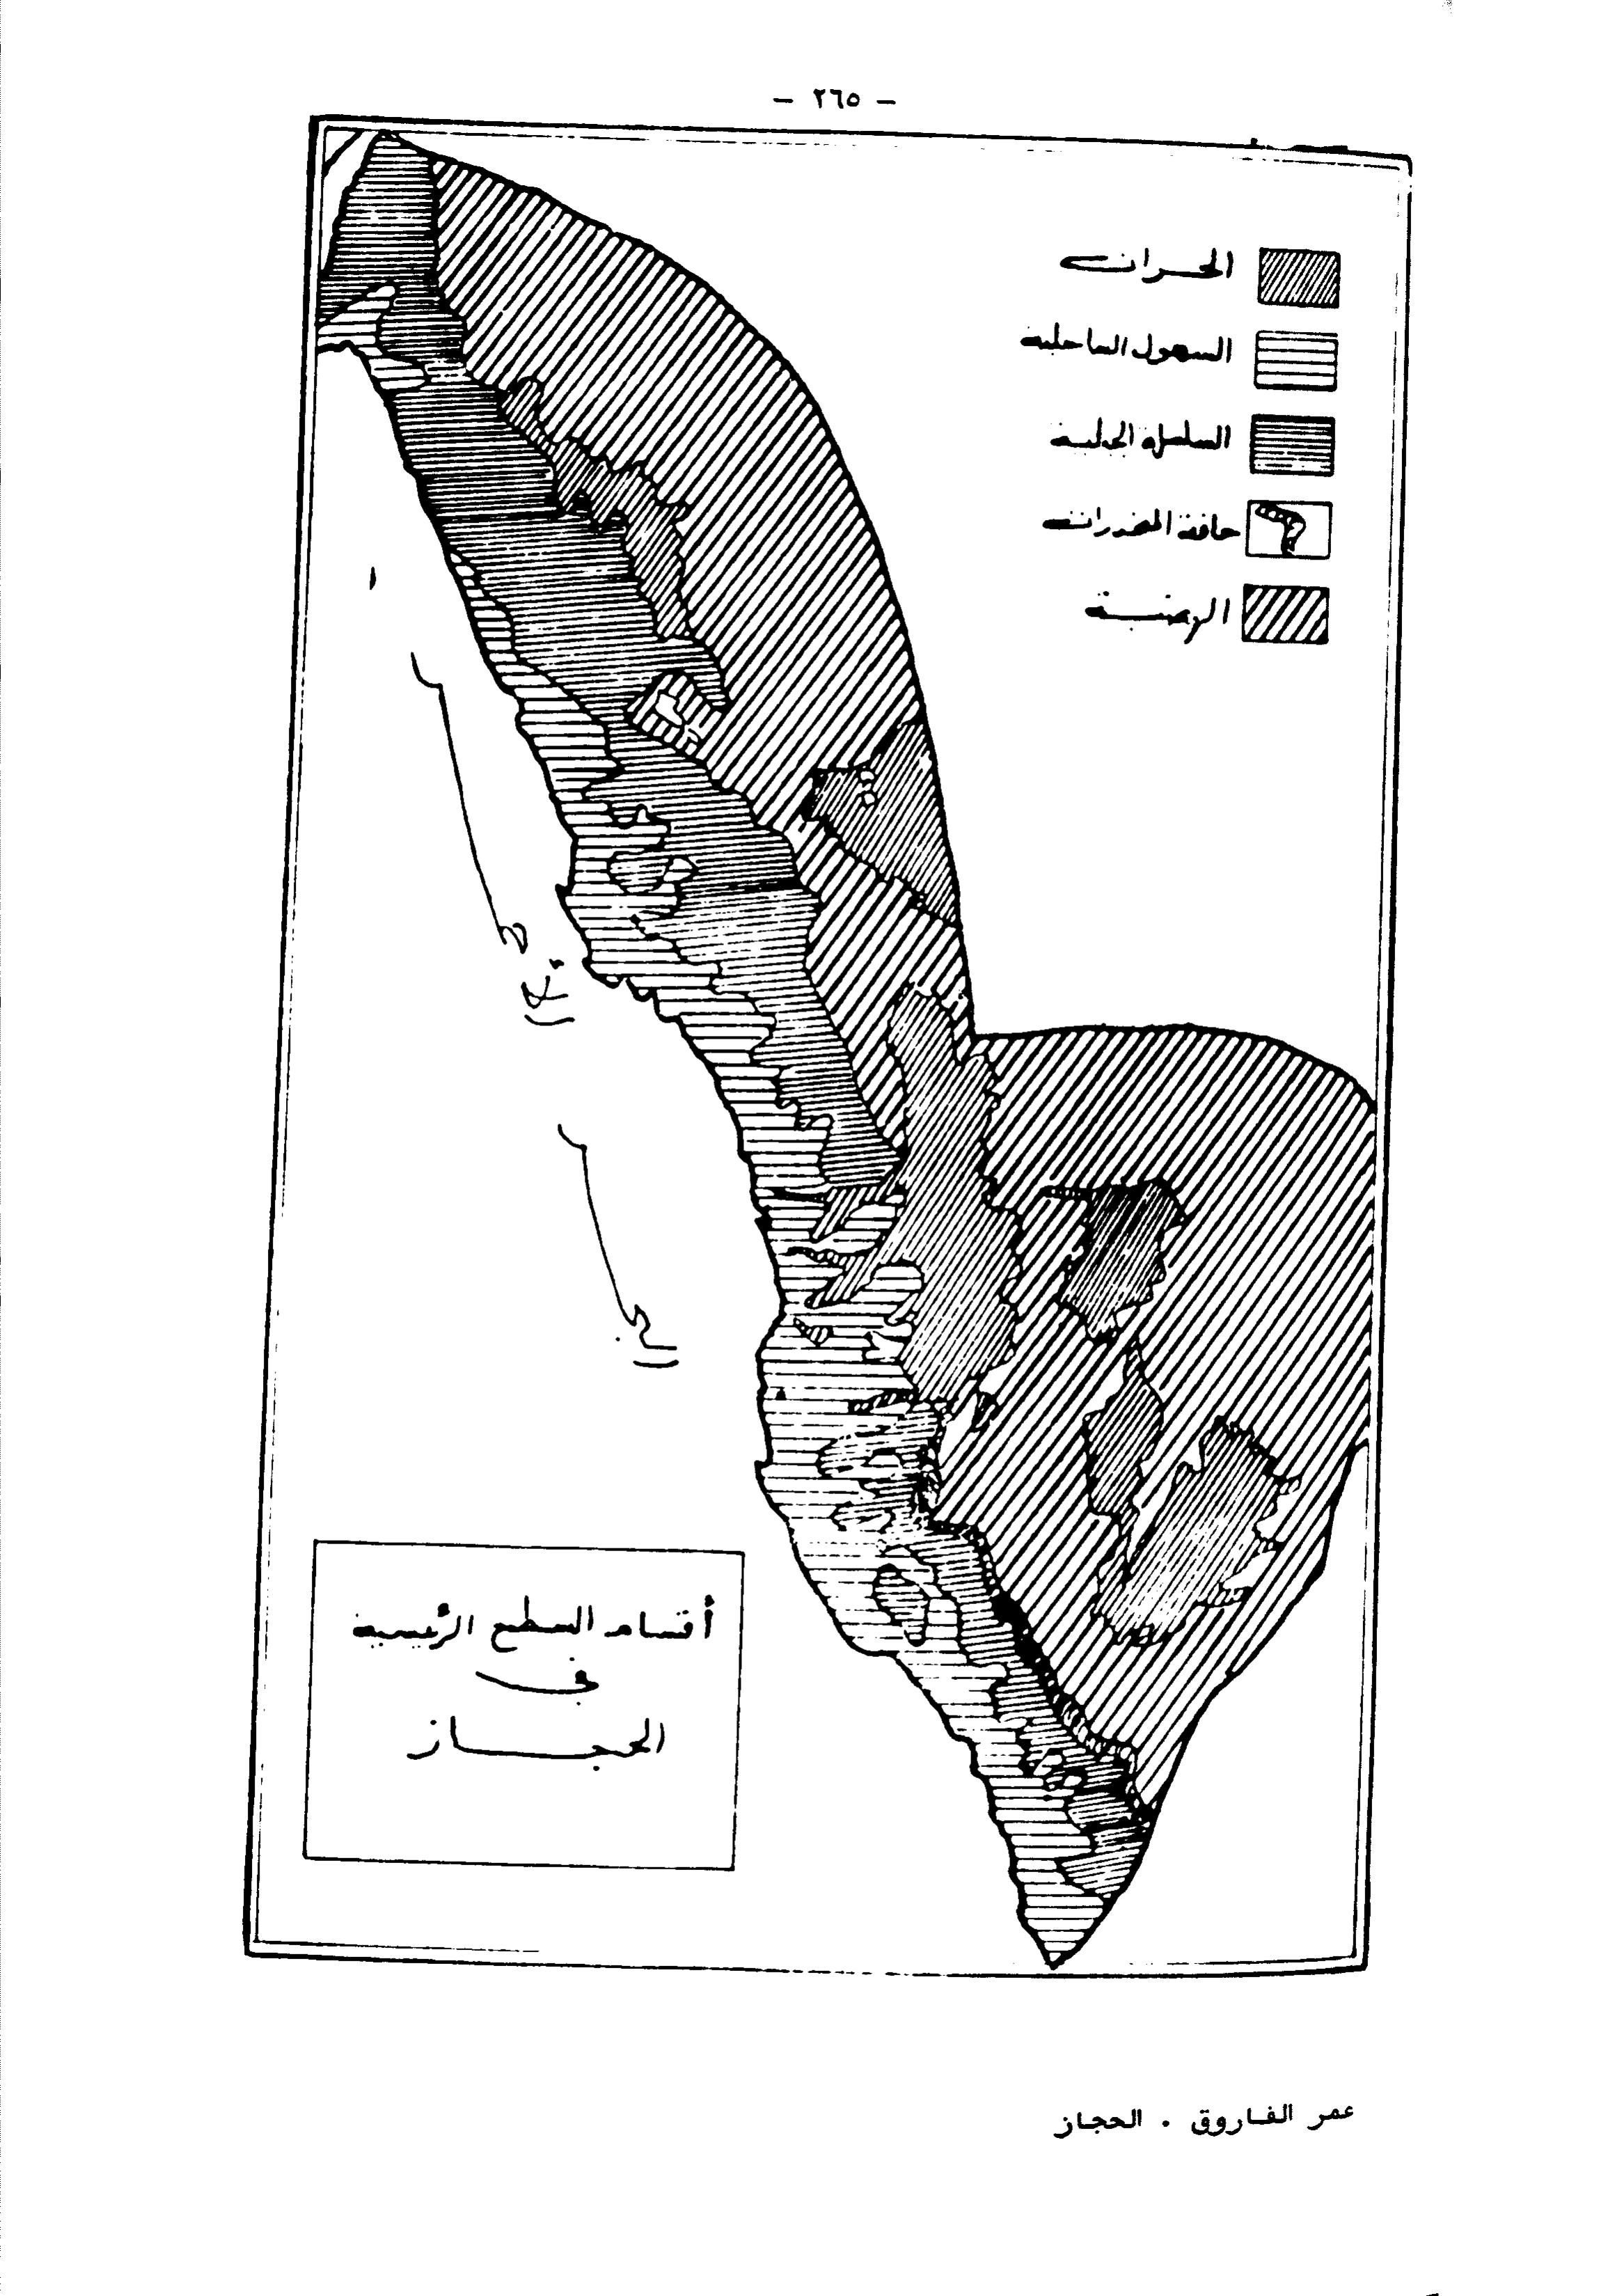 - ٢٦٥ -
الحرات
السهول الساحلية
السلسلة الجبلية
حافة المنحدرات
الهضبة
البحر الأحمر
أقسام السطح الرئيسية
في
الحجاز
عمر الفاروق . الحجاز